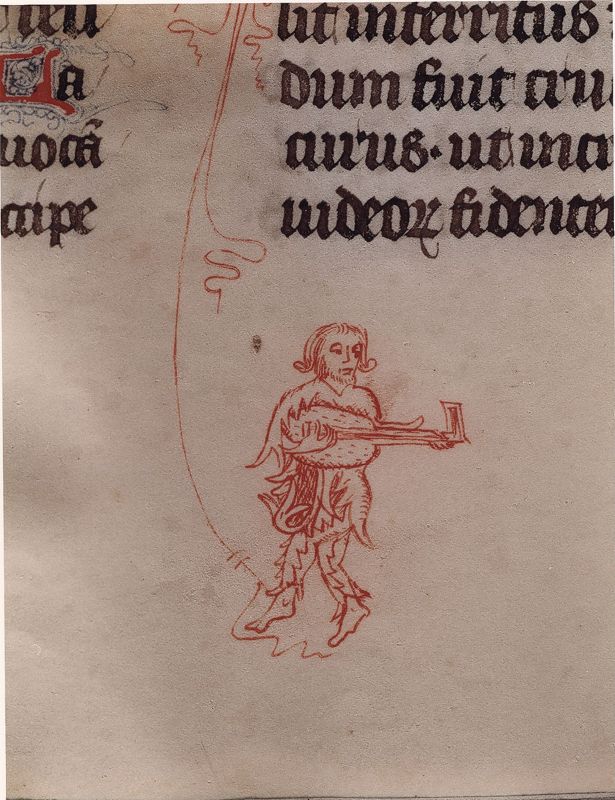 La
uocā
cipe
lit interritus
dum fuit cru
curus · ut incr
uideoꝝ fidenter